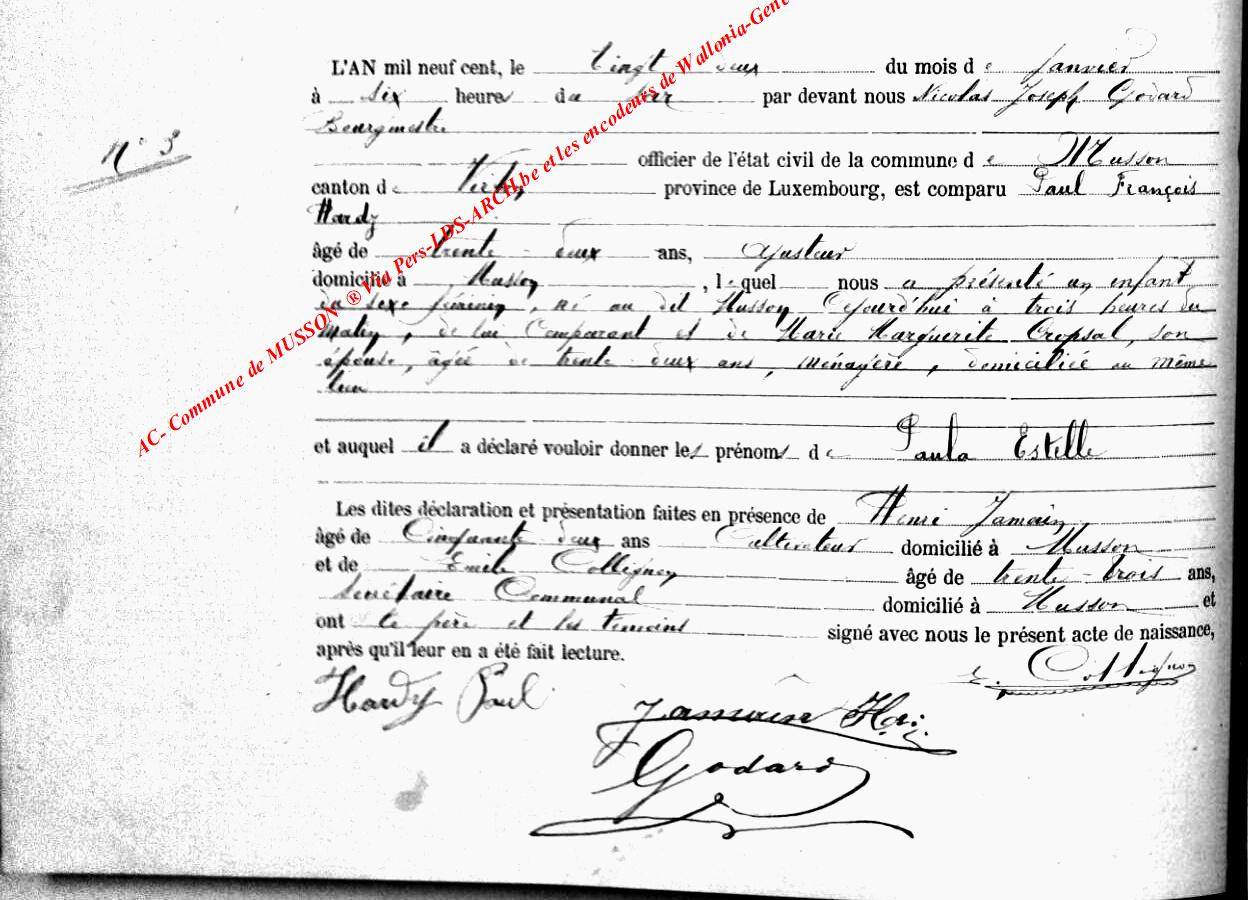 L'AN mil neuf cent, le vingt deux du mois de janvier
à six heures du soir par devant nous Nicolas Joseph Godard
Bourgmestre
N° 3
officier de l'état civil de la commune de Musson
canton de Virton province de Luxembourg, est comparu Paul François
Hardy
âgé de trente-deux ans, Ajusteur
domicilié à Musson, lequel nous a présenté un enfant
du sexe féminin, né au dit Musson Cejourd'hui à trois heures du
matin, de lui Comparant et de Marie Marguerite Cropsal, son
épouse, âgée de trente deux ans, ménagère, domiciliée au même
lieu
et auquel il a déclaré vouloir donner les prénoms de Paula Estelle
Les dites déclaration et présentation faites en présence de Henri Jamain
âgé de Cinquante deux ans Cultivateur domicilié à Musson
et de Emile Collignon âgé de trente-trois ans,
Secrétaire Communal domicilié à Musson et
ont le père et les témoins signé avec nous le présent acte de naissance,
après qu'il leur en a été fait lecture.
E. Collignon
Hardy Paul
Godard
AC- Commune de MUSSON ® Via Pers-LDS-ARCH.be et les encodeurs de Wallonia-Gene